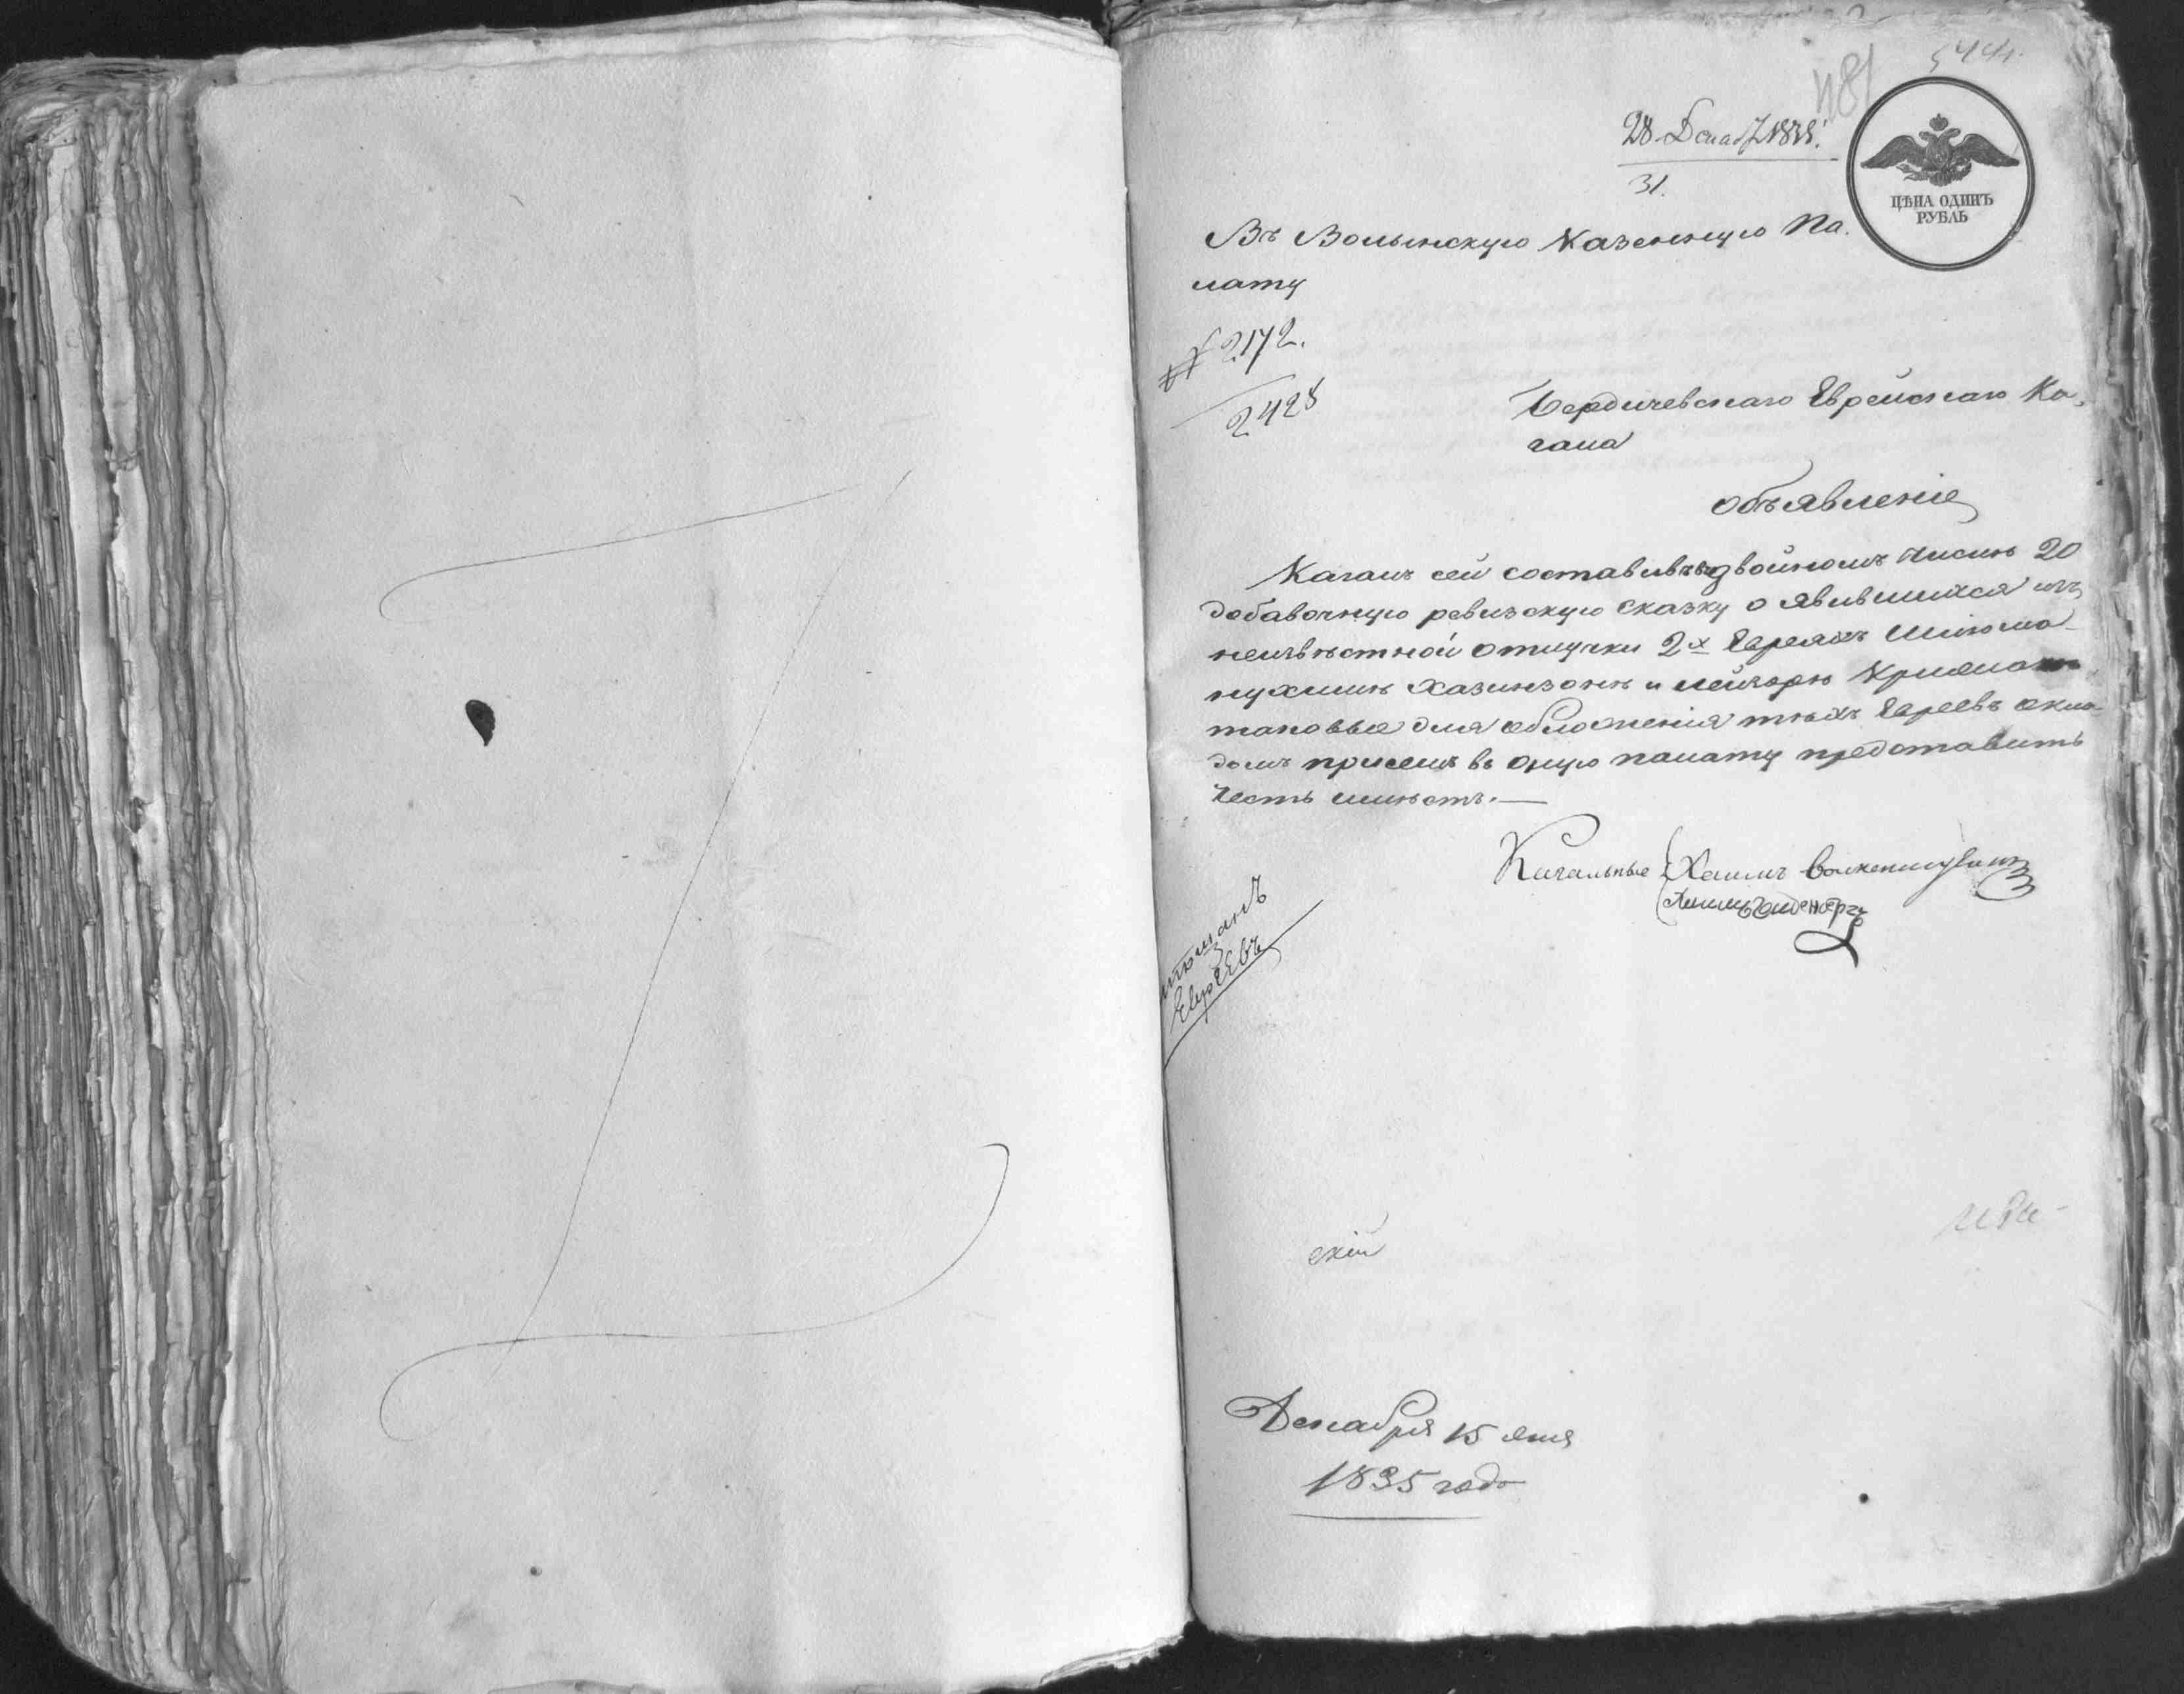 481
544
28 Декаб 1835.
31.
ЦѢНА ОДИНЪ
РУБЛЬ
Въ Волынскую Казенную Па
лату
№ 2172.
2428
Бердичевскаго Еврейскаго Ка
гала
объявленіе
Кагалъ сей составивъ въ двойномъ числѣ 20
добавочную ревизскую сказку о явившихся изъ
неизвѣстной отлучки 2х Евреяхъ Шлюма
нухимѣ Хазинзонѣ и лейзорѣ
таковые для обложенія тѣхъ Евреевъ окла
домъ присемъ въ оную палату представить
честь имѣетъ.—
Кагальные Хаимъ
мѣщанъ
Евреевъ
скій
Декабря 15 дня
1835 года